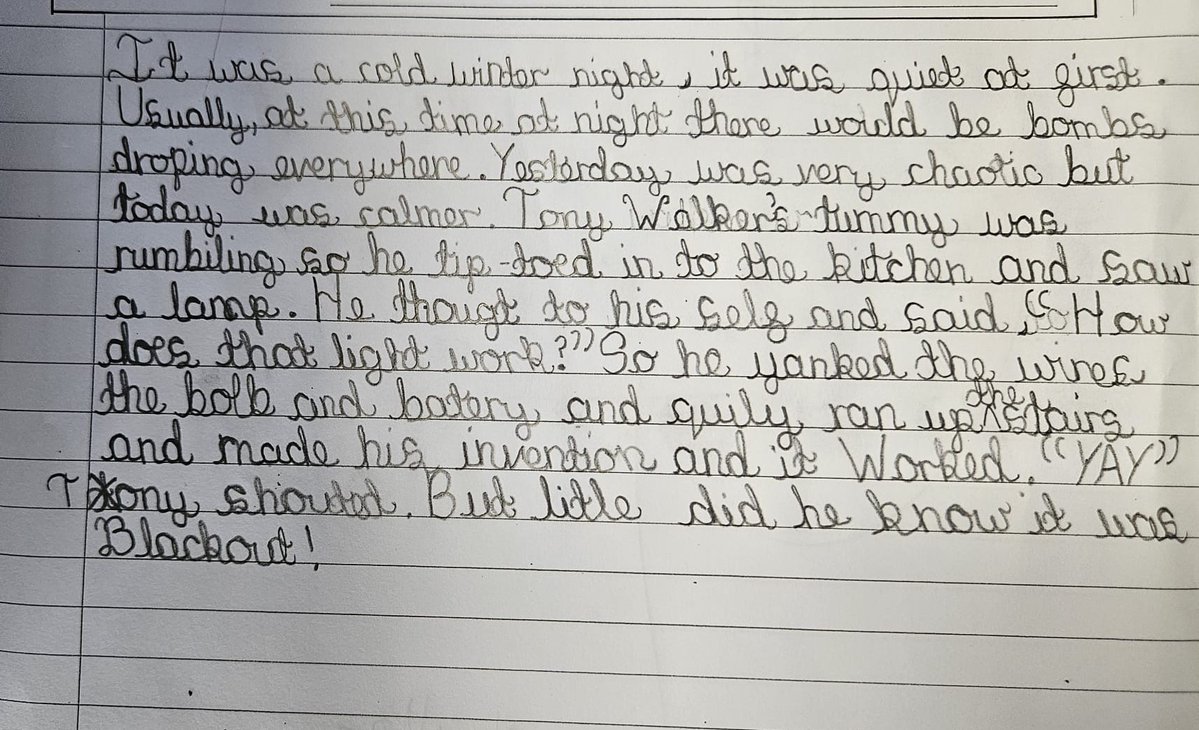 It was a cold winter night, it was quiet at first.
Usually, at this time at night there would be bombs
droping everywhere. Yesterday was very chaotic but
today was calmer. Tony Walker's tummy was
rumbiling so he tip-toed in to the kitchen and saw
a lamp. He thougt to his self and said, "How
does that light work?" So he yanked the wires
the bolb and batery and quily ran up the stairs
and made his invention and it Worked. "YAY"
Tony shouted. But little did he know it was
Blackout!